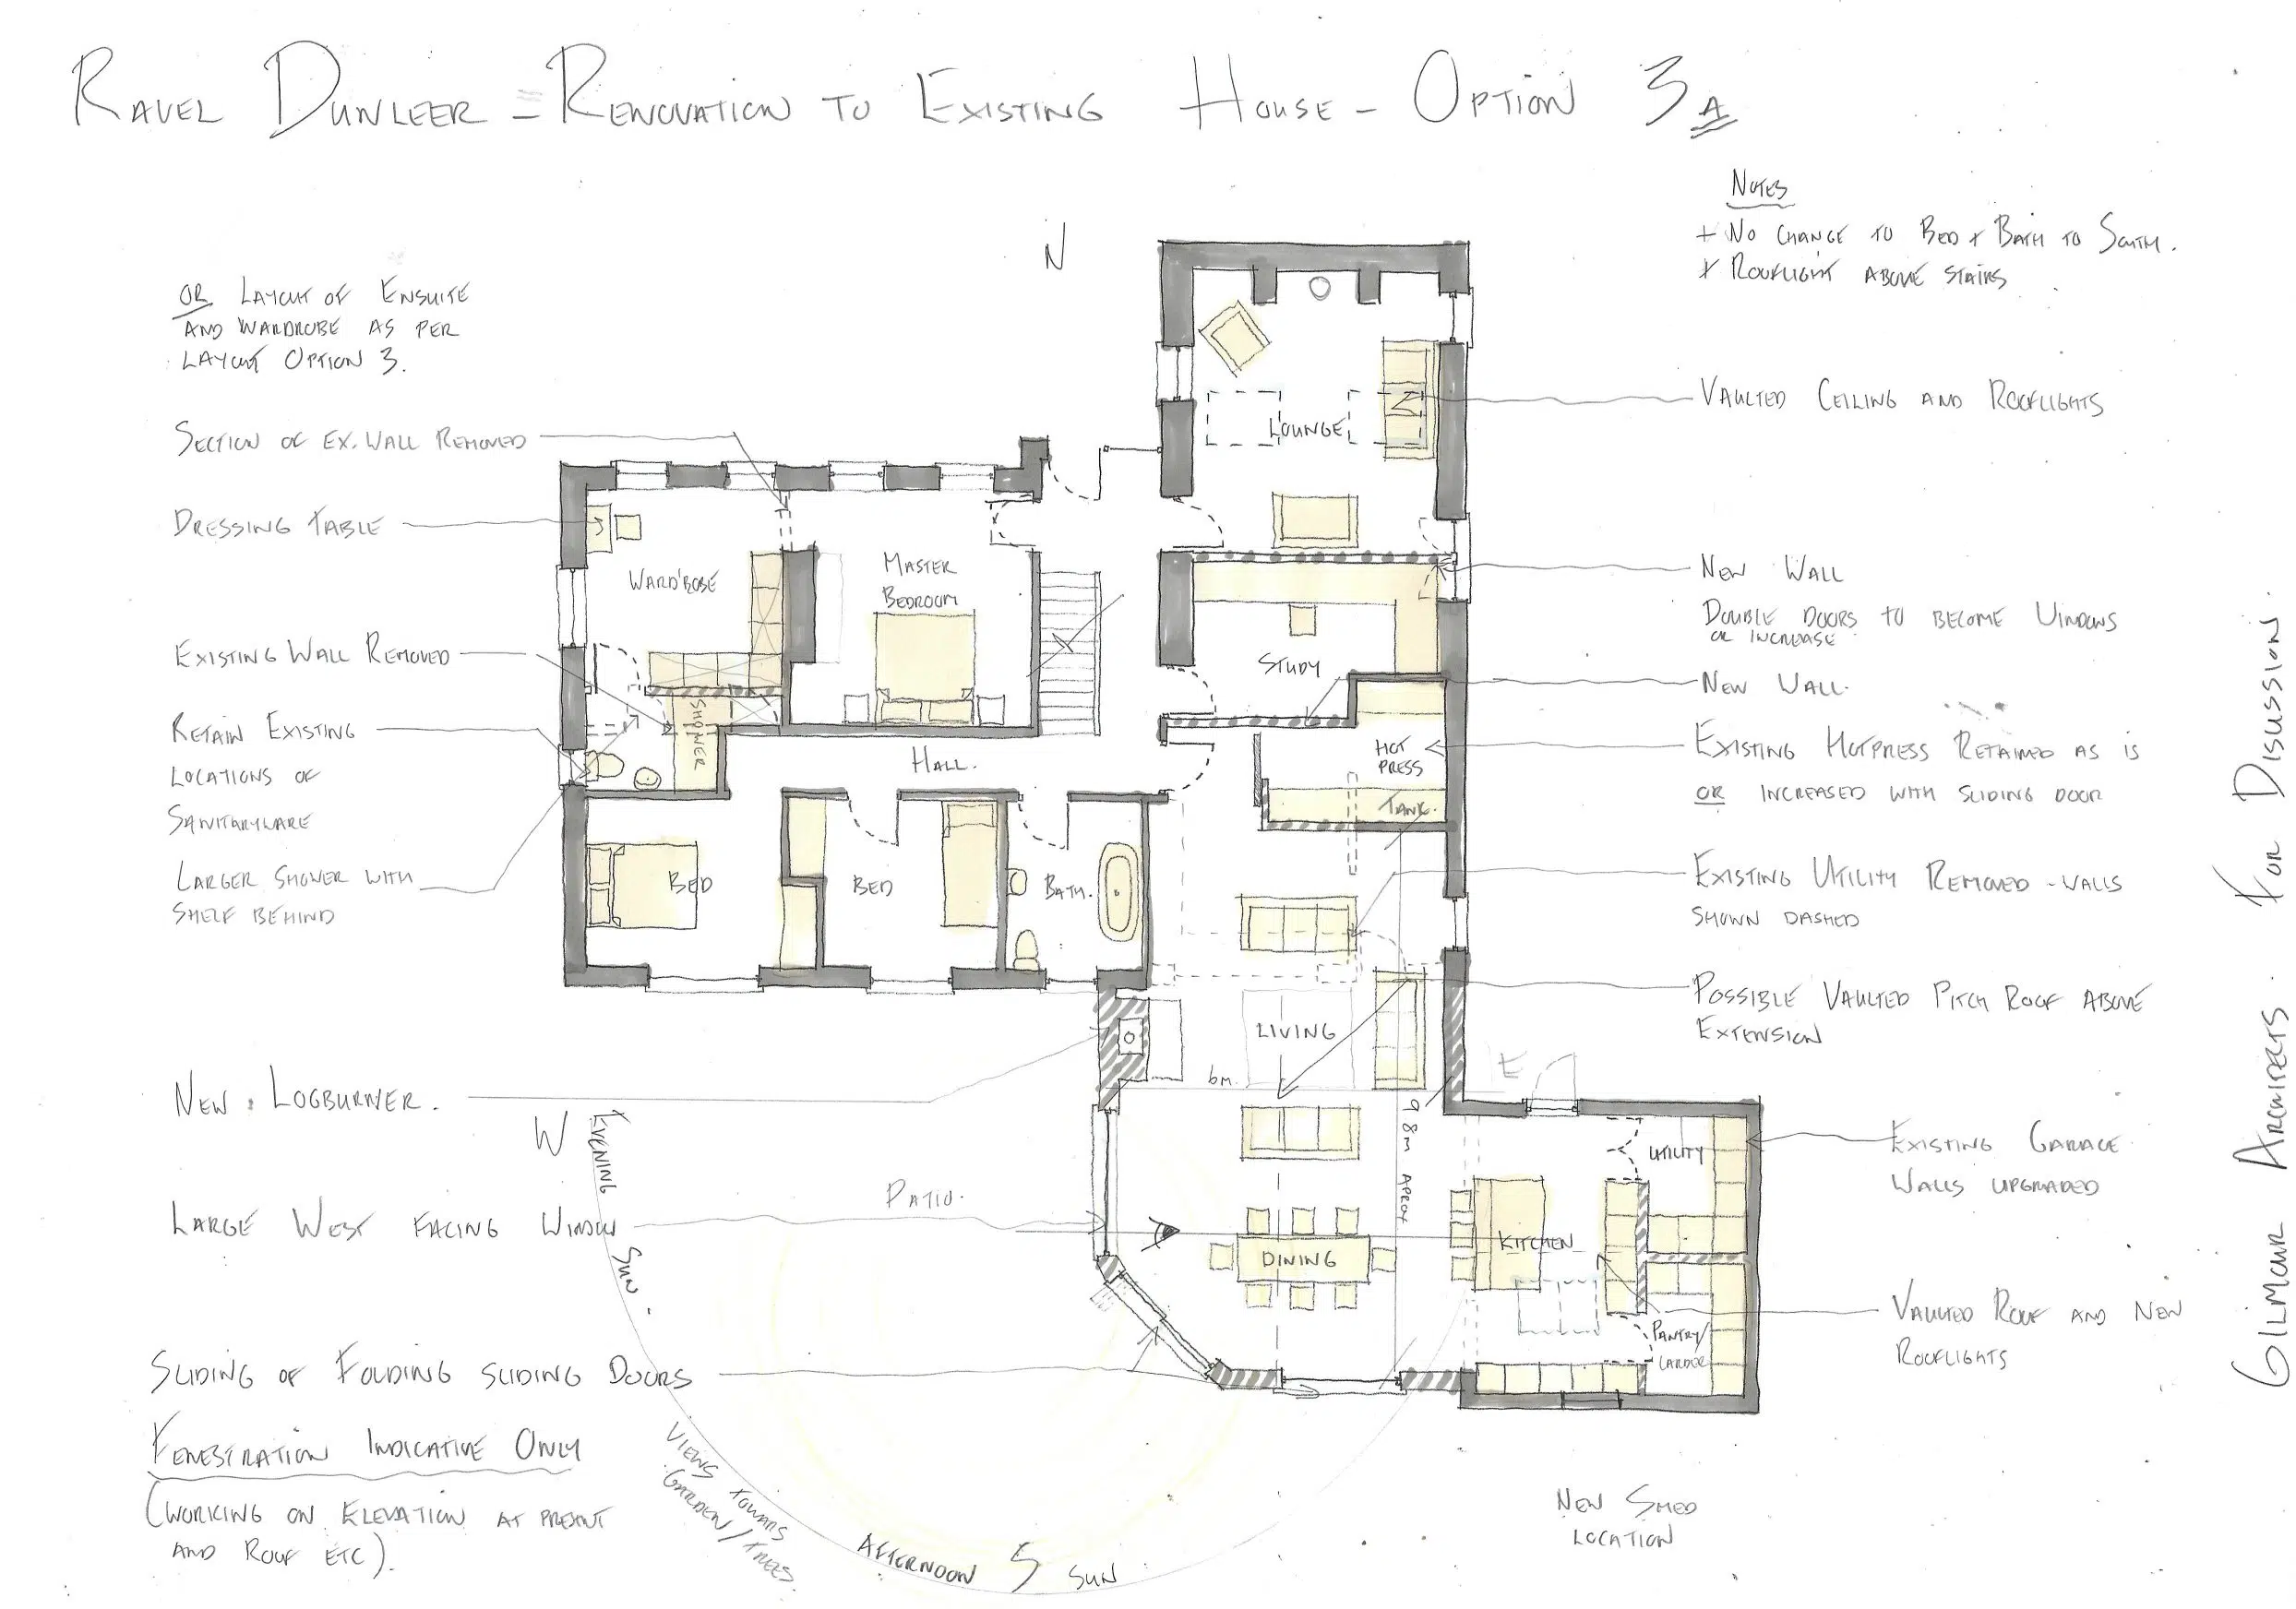 RAVEL DUNLEER = RENOVATION TO EXISTING HOUSE - OPTION 3A
NOTES
+ NO CHANGE TO BED + BATH TO SOUTH.
+ ROOFLIGHT ABOVE STAIRS
N
OR LAYOUT OF ENSUITE
AND WARDROBE AS PER
LAYOUT OPTION 3.
SECTION OF EX. WALL REMOVED
DRESSING TABLE
EXISTING WALL REMOVED
RETAIN EXISTING
LOCATIONS OF
SANITARYWARE
LARGER SHOWER WITH
SHELF BEHIND
NEW LOGBURNER.
W
EVENING SUN.
LARGE WEST FACING WINDOW
PATIO.
SLIDING OF FOLDING SLIDING DOORS
FENESTRATION INDICATIVE ONLY
(WORKING ON ELEVATION AT PRESENT
AND ROOF ETC).
VIEWS TOWARS
GARDEN/TREES.
AFTERNOON S SUN
WARD'ROBE
MASTER
BEDROOM
SHOWER
HALL.
BED
BED
BATH.
LOUNGE
STUDY
HOT
PRESS
TANK.
LIVING
6m.
9 8m APROX
DINING
KITCHEN
UTILITY
PANTRY/
LARDER
E
VAULTED CEILING AND ROOFLIGHTS
NEW WALL
DOUBLE DOORS TO BECOME WINDOWS
OR INCREASE
NEW WALL.
EXISTING HOTPRESS RETAINED AS IS
OR INCREASED WITH SLIDING DOOR
EXISTING UTILITY REMOVED - WALLS
SHOWN DASHED
POSSIBLE VAULTED PITCH ROOF ABOVE
EXTENSION
EXISTING GARAGE
WALLS UPGRADED
VAULTED ROOF AND NEW
ROOFLIGHTS
NEW SHED
LOCATION
GILMOUR ARCHITECTS. FOR DISUSSION.